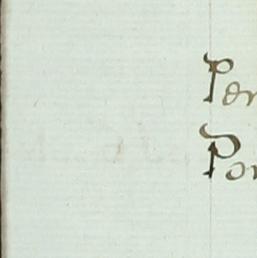 Per
Por